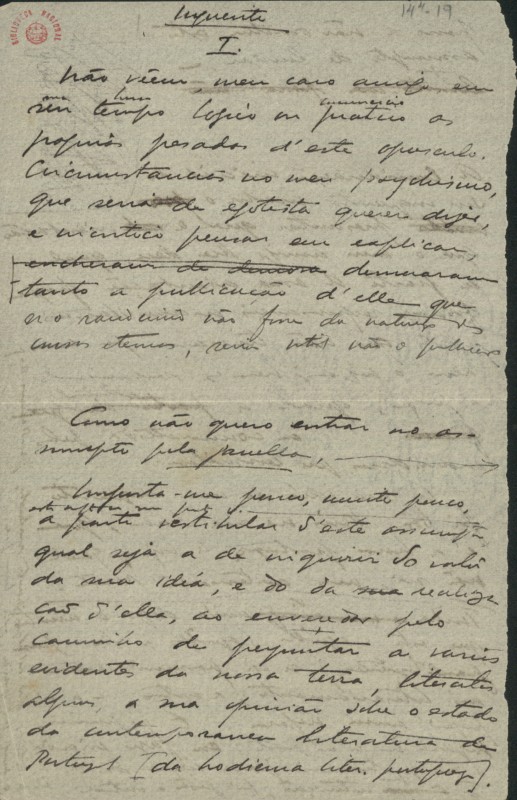 Inquerito
14⁴-19
BIBLIOTECA NACIONAL
I.
Não vêem, meu caro amigo em
seu tempo logico ou pratico as
paginas pesadas d'este opusculo.
Circumstancias no meu psychismo,
que seria de egotista querer dizer,
e pensar em explicar,
encheram de demora demoraram
tanto a publicação d'ella que
o não fosse da natureza das
cousas eternas, seria não o
Como não quero entrar no as-
sumpto pela janella,
Importa-me pouco, muito pouco,
a parte vestibular d'este assumpto
qual seja a de inquirir do valor
da sua idéa, e do da sua realiza
ção d'ella, ao enveredar pelo
caminho de perguntar a varios
evidentes da nossa terra, literatos
alguns, a sua opinião sobre o estado
da contemporanea literatura de
Portugal [da hodierna liter. portugueza].